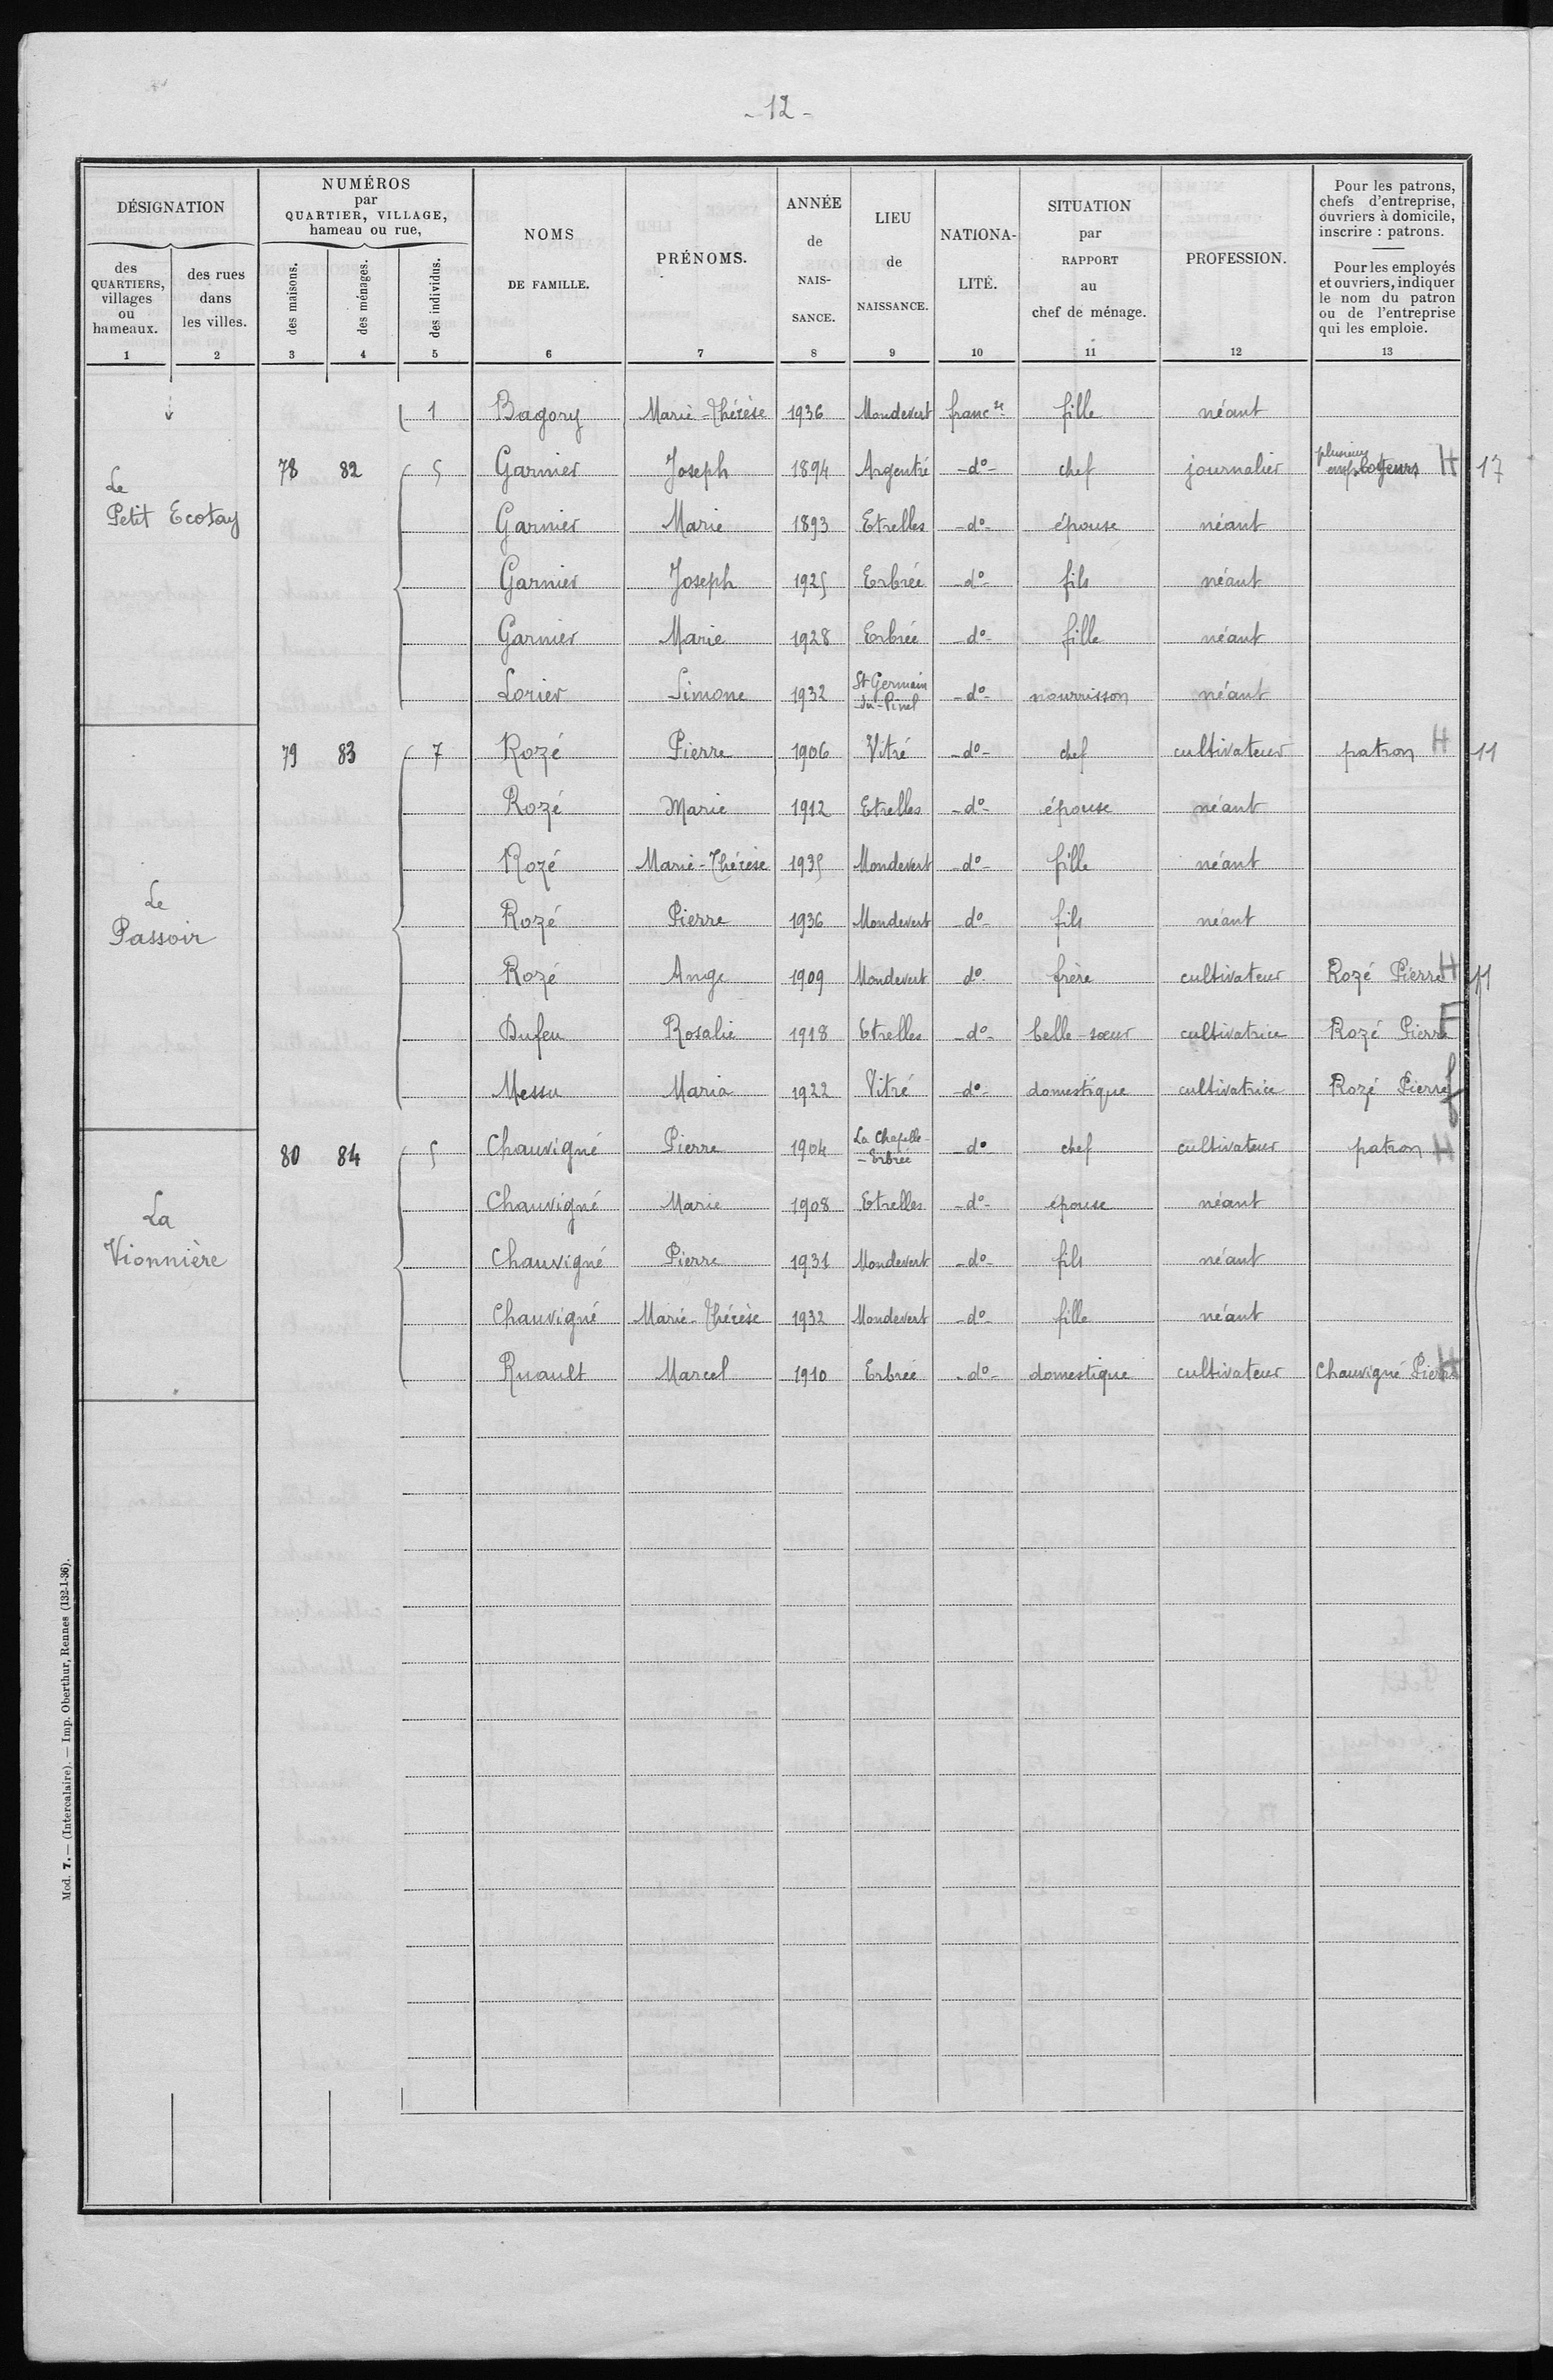 - 12 -
DÉSIGNATION
des QUARTIERS, villages ou hameaux.
des rues dans les villes.
NUMÉROS par QUARTIER, VILLAGE, hameau ou rue,
des maisons.
des ménages.
des individus.
NOMS DE FAMILLE.
PRÉNOMS.
ANNÉE de NAIS-SANCE.
LIEU de NAISSANCE.
NATIONA-LITÉ.
SITUATION par RAPPORT au chef de ménage.
PROFESSION.
Pour les patrons, chefs d'entreprise, ouvriers à domicile, inscrire : patrons.
Pour les employés et ouvriers, indiquer le nom du patron ou de l'entreprise qui les emploie.
1 2 3 4 5 6 7 8 9 10 11 12 13
1 Bagory Marie-Thérèse 1936 Mondevert franc se fille néant
Le Petit Ecotay
78 82 5 Garnier Joseph 1894 Argentré -d°- chef journalier plusieurs employeurs H 17
Garnier Marie 1893 Etrelles -d°- épouse néant
Garnier Joseph 1925 Erbrée -d°- fils néant
Garnier Marie 1928 Erbrée -d°- fille néant
Lorier Simone 1932 St Germain-du-Pinel -d°- nourrisson néant
Le Passoir
79 83 7 Rozé Pierre 1906 Vitré -d°- chef cultivateur patron H 11
Rozé Marie 1912 Etrelles -d°- épouse néant
Rozé Marie-Thérèse 1935 Mondevert -d°- fille néant
Rozé Pierre 1936 Mondevert -d°- fils néant
Rozé Ange 1909 Mondevert -d°- frère cultivateur Rozé Pierre H 11
Dufeu Rosalie 1918 Etrelles -d°- belle-sœur cultivatrice Rozé Pierre F
Messu Maria 1922 Vitré -d°- domestique cultivatrice Rozé Pierre f
La Vionnière
80 84 5 Chauvigné Pierre 1904 La Chapelle-Erbrée -d°- chef cultivateur patron H
Chauvigné Marie 1908 Etrelles -d°- épouse néant
Chauvigné Pierre 1931 Mondevert -d°- fils néant
Chauvigné Marie-Thérèse 1932 Mondevert -d°- fille néant
Ruault Marcel 1910 Erbrée -d°- domestique cultivateur Chauvigné Pierre H
Mod. 7. — (Intercalaire). — Imp. Oberthur, Rennes (132-1-36).